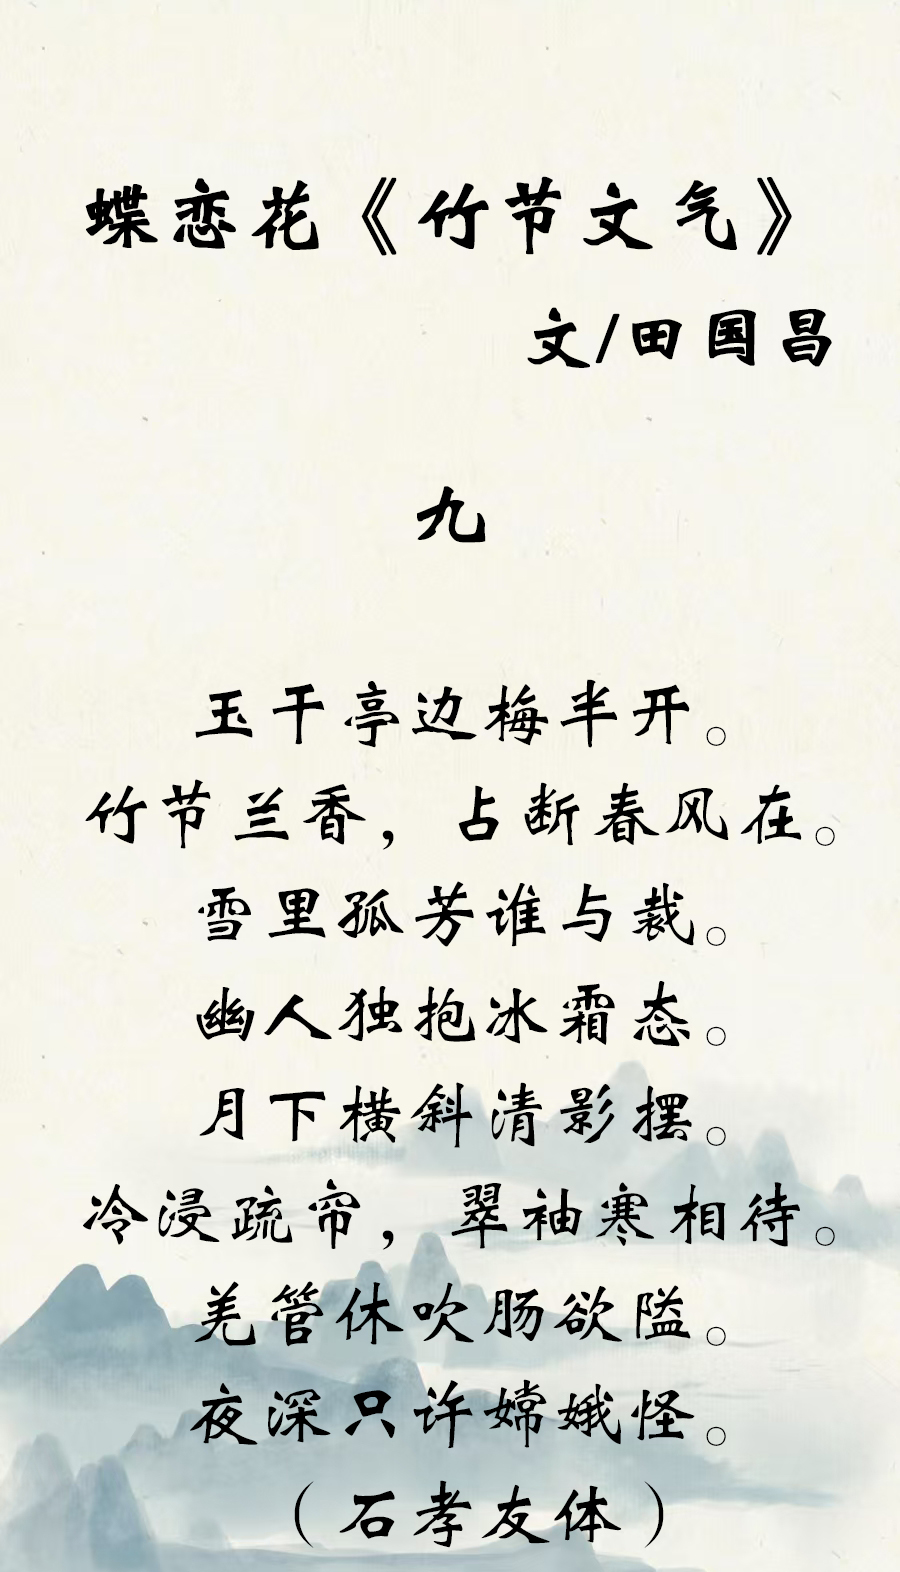 蝶恋花《竹节文气》
文/田国昌
九
玉干亭边梅半开。
竹节兰香，占断春风在。
雪里孤芳谁与裁。
幽人独抱冰霜态。
月下横斜清影摆。
冷浸疏帘，翠袖寒相待。
羌管休吹肠欲隘。
夜深只许嫦娥怪。
（石孝友体）